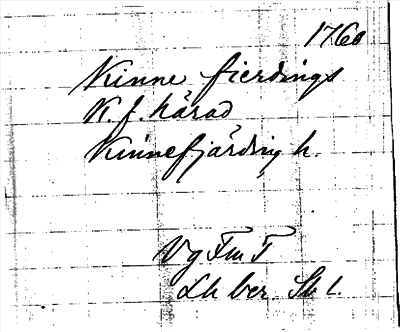 1760
Kinne fierdings
K. f. härad
Kinnefjärding h.
Vg Fm T
Lh ber. Sk 1.